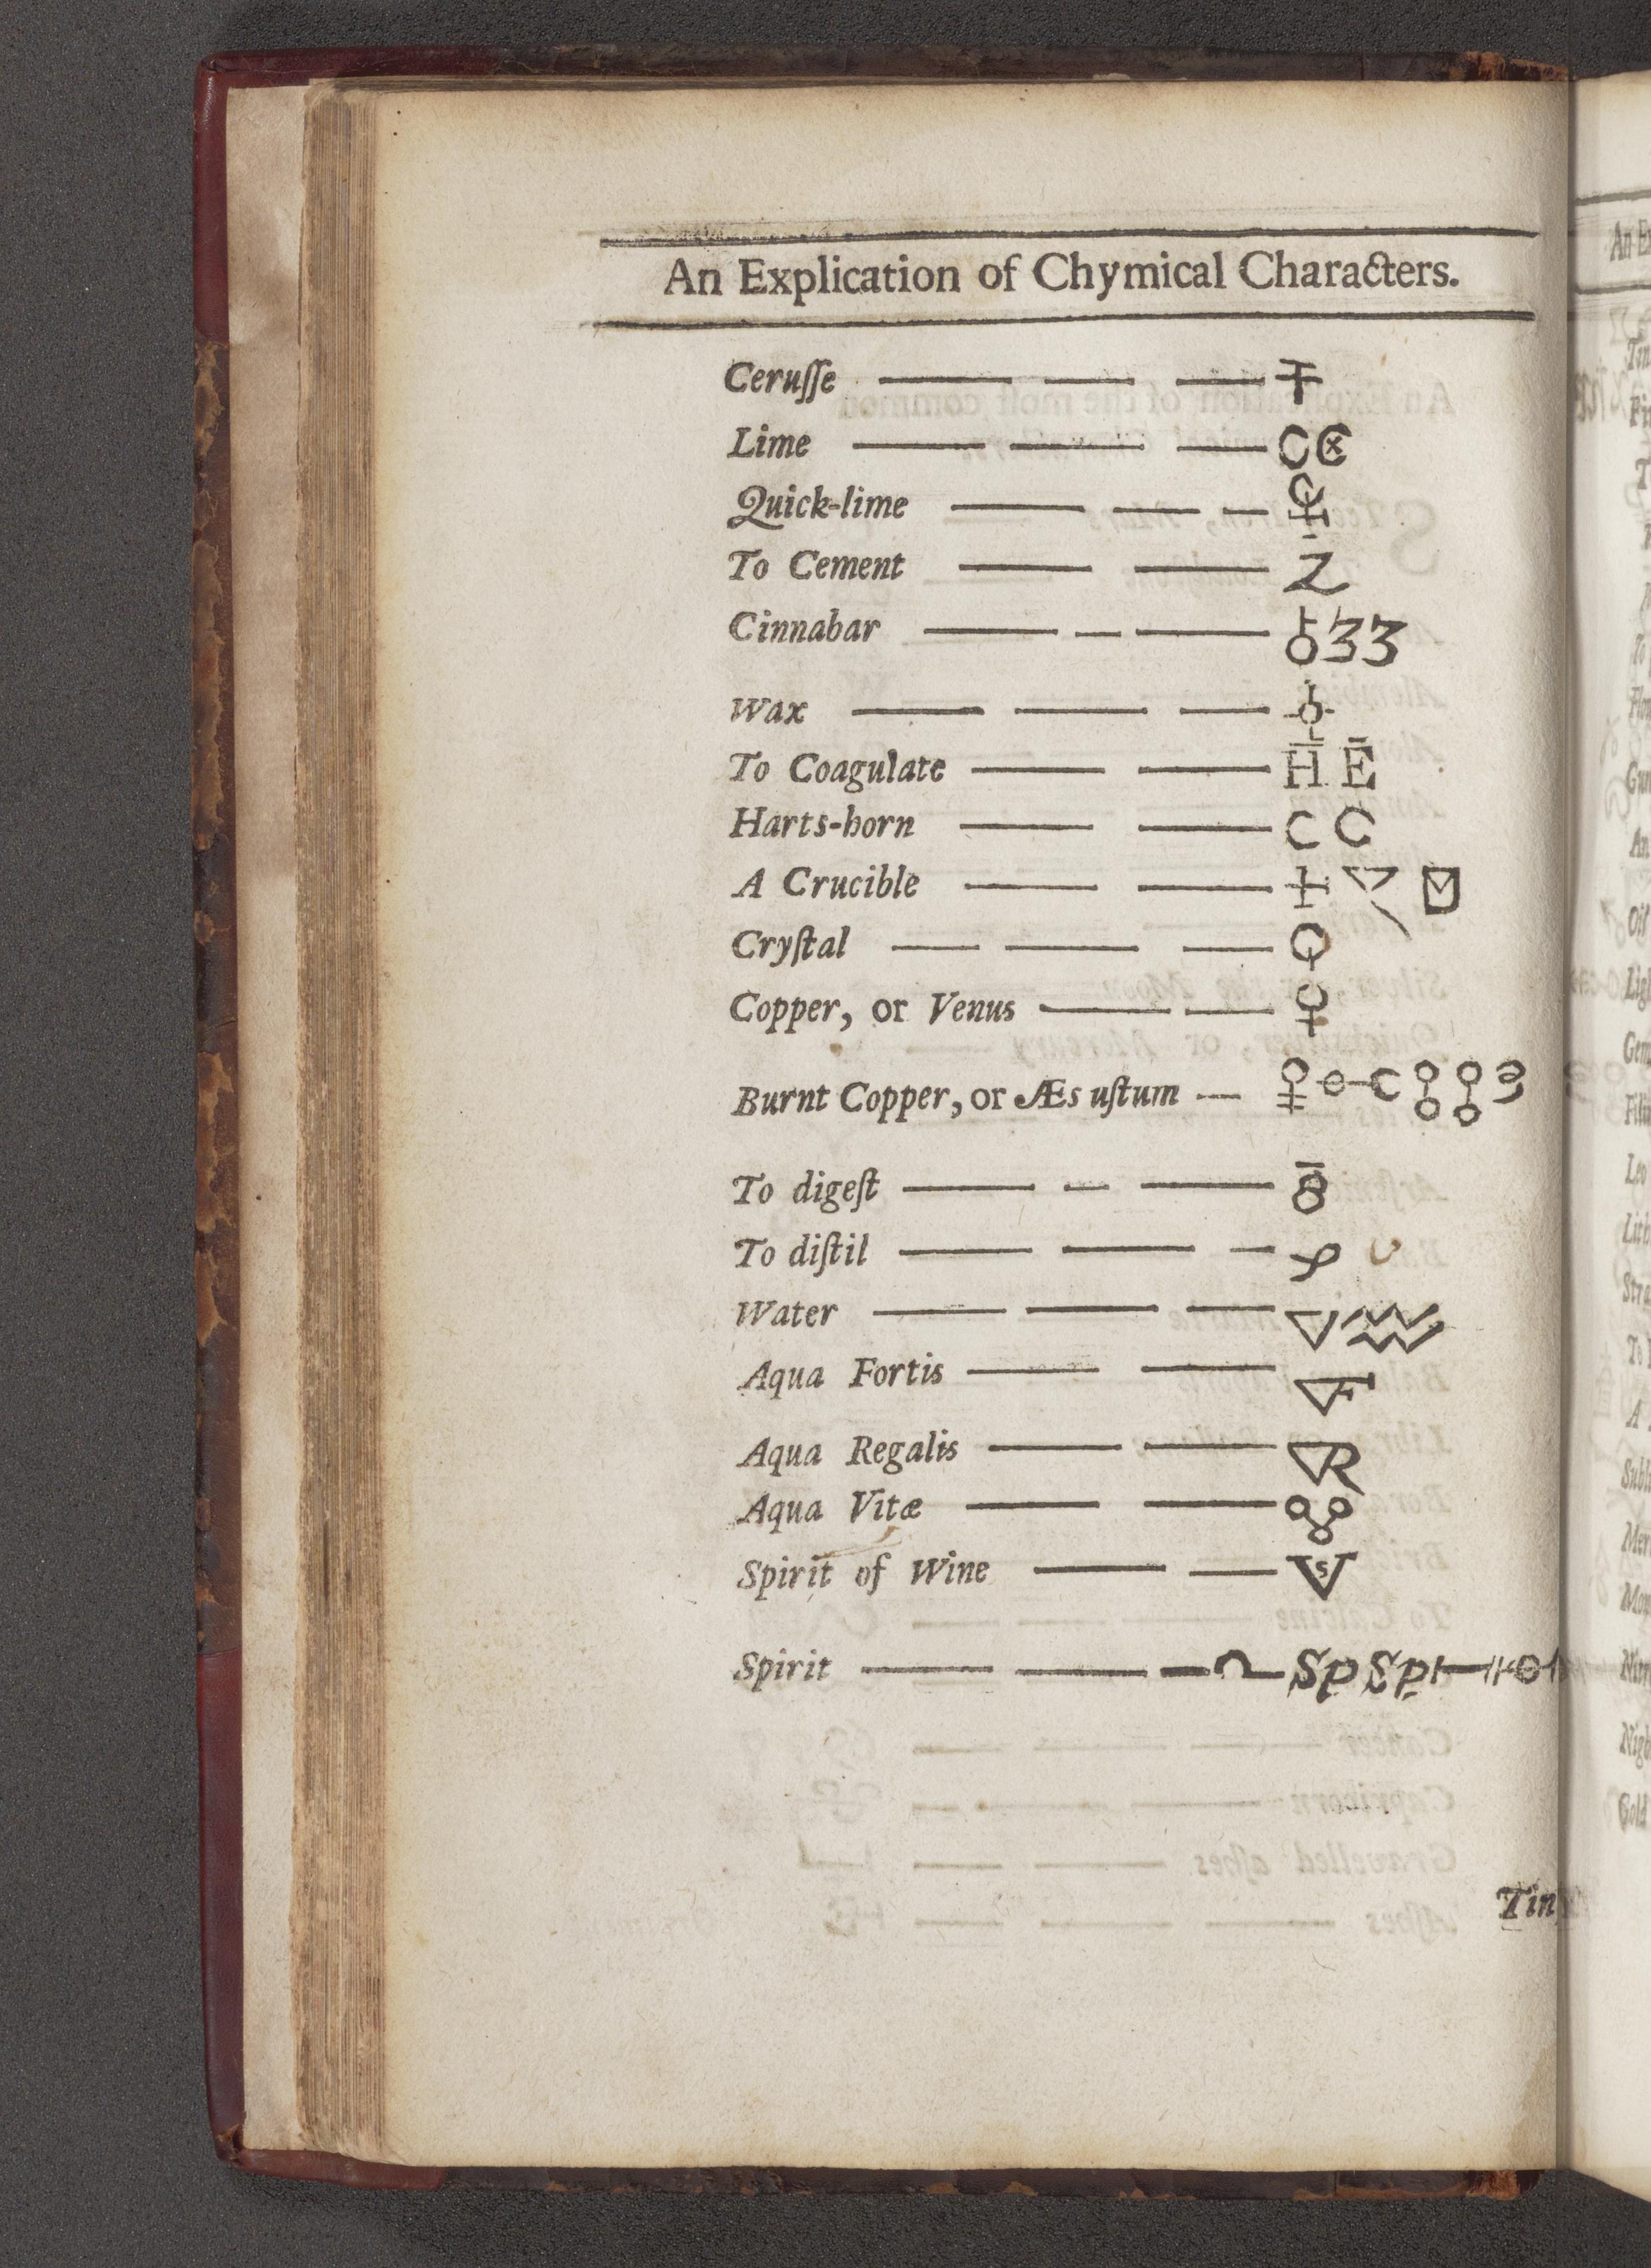 An Explication of Chymical Characters.
Ceruſſe
Lime
Quick-lime
To Cement
Cinnabar
Wax
To Coagulate H̄ Ē
Harts-horn
A Crucible
Cryſtal
Copper, or Venus ♀
Burnt Copper, or Æs uſtum
To digeſt
To diſtil
Water
Aqua Fortis
Aqua Regalis
Aqua Vitæ
Spirit of Wine
Spirit Sp Sp
Tin